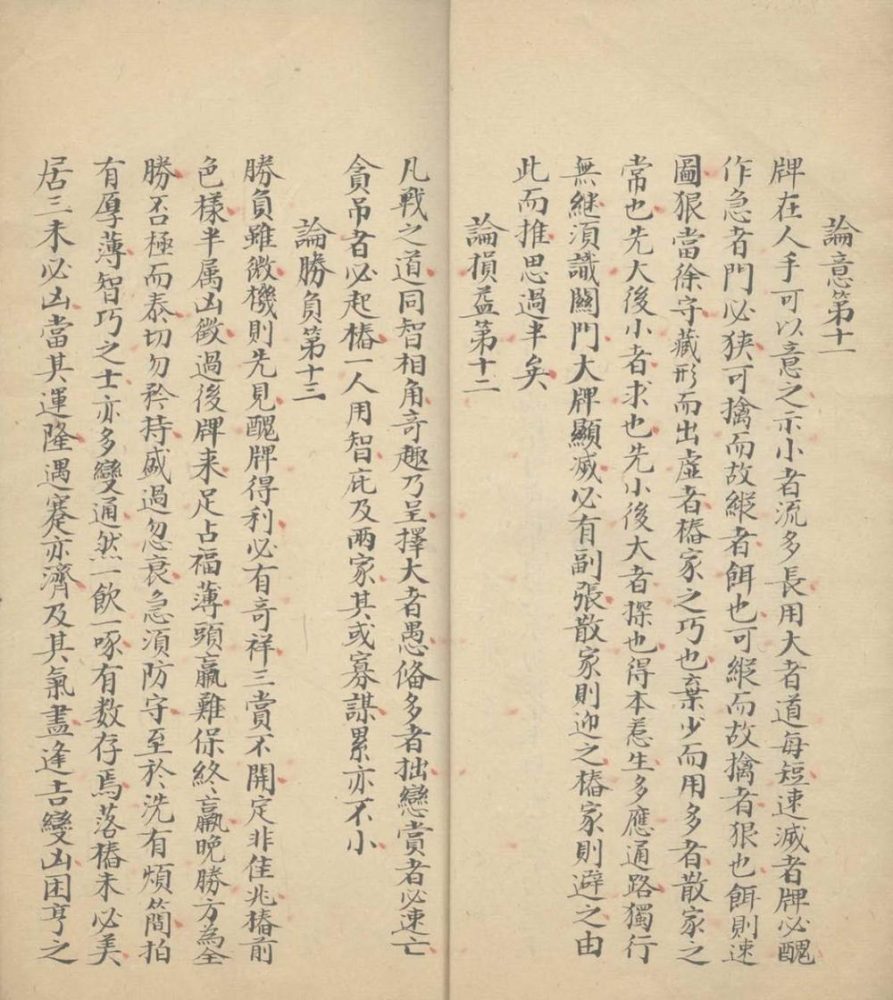 論意第十一
牌在人手可以意之示小者流多長用大者道每短速滅者牌必醜
作急者門必狹可擒而故縱者餌也可縱而故擒者狠也餌則速
圖狠當徐守藏形而出虛者樁家之巧也棄少而用多者散家之
常也先大後小者求也先小後大者探也得本惹生多應通路獨行
無継須識關門大牌顯滅必有副張散家則迎之樁家則避之由
此而推思過半矣
論損益第十二
凡戰之道同智相角奇趣乃呈擇大者愚偹多者拙戀賞者必速亡
貪吊者必起樁一人用智庇及兩家其或寡謀累亦不小
論勝負第十三
勝負雖微機則先見醜牌得利必有奇祥三賞不開定非佳兆樁前
色樣半属凶徴過後牌来足占福薄頭贏難保終贏晚勝方為全
勝否極而泰切勿矜持盛過忽衰急須防守至於洗有煩簡拍
有厚薄智巧之士亦多變通然一飲一啄有数存焉落樁未必美
居三未必凶當其運隆遇蹇亦濟及其氣盡逢吉變凶困亨之